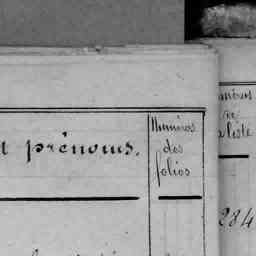 t prénoms.
Numéros
des
folios
la liste
284